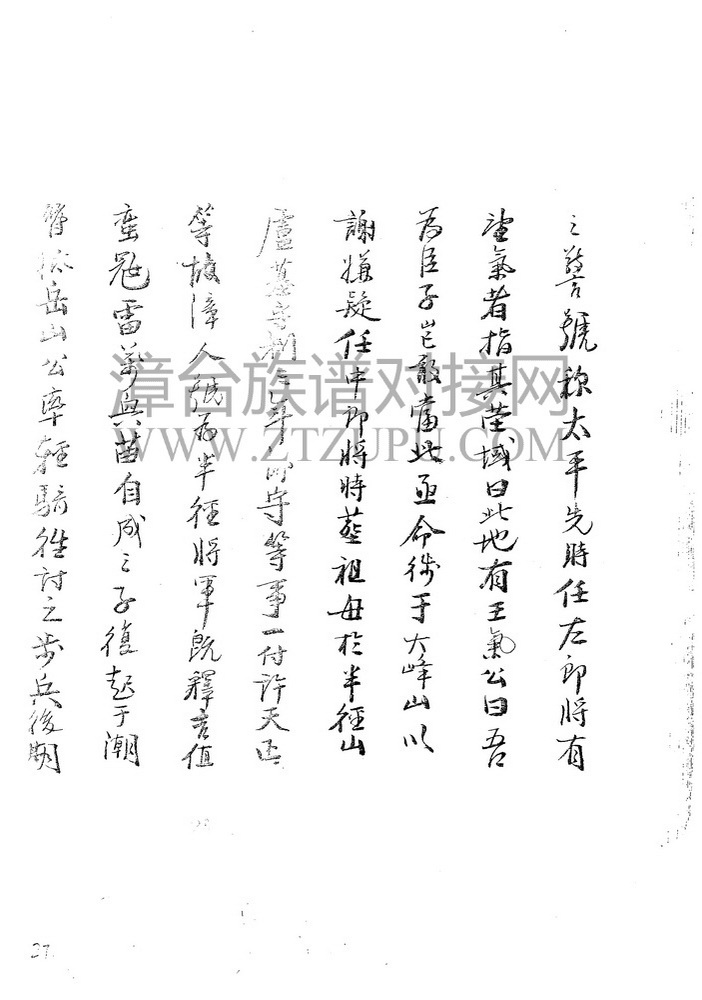 之警號称太平先時任左郎將有
望氣者指其茔域曰此地有王氣公曰吾
為臣子豈敢當此亟命徙于大峰山以
謝嫌疑任中郎將時塟祖母於半徑山
廬墓 制三年 守等事一付許天正
等故漳人號為半徑將軍既釋 值
蛮冠雷萬興苗自成之子復起于潮
岳山公率輕騎往討之步兵後期
漳台族谱对接网
WWW.ZTZUPU.COM
27